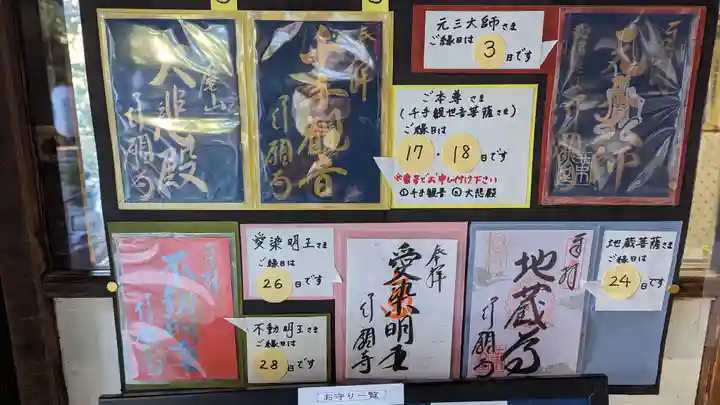 尾山
大悲殿
行願寺
奉拝
千手観音
行願寺
元三大師さま
ご縁日は
3
日です
ご本尊さま
(千手観世音菩薩さま)
ご縁日は
17・18日です
※番号でお申し付け下さい
①千手観音 ②大悲殿
元三大師
愛染明王さま
ご縁日は
26
日です
不動明王
行願寺
不動明王さま
ご縁日は
28
日です
奉拝
愛染明王
行願寺
奉拝
地蔵尊
行願寺
地蔵菩薩さま
ご縁日は
24
日です
お守り一覧